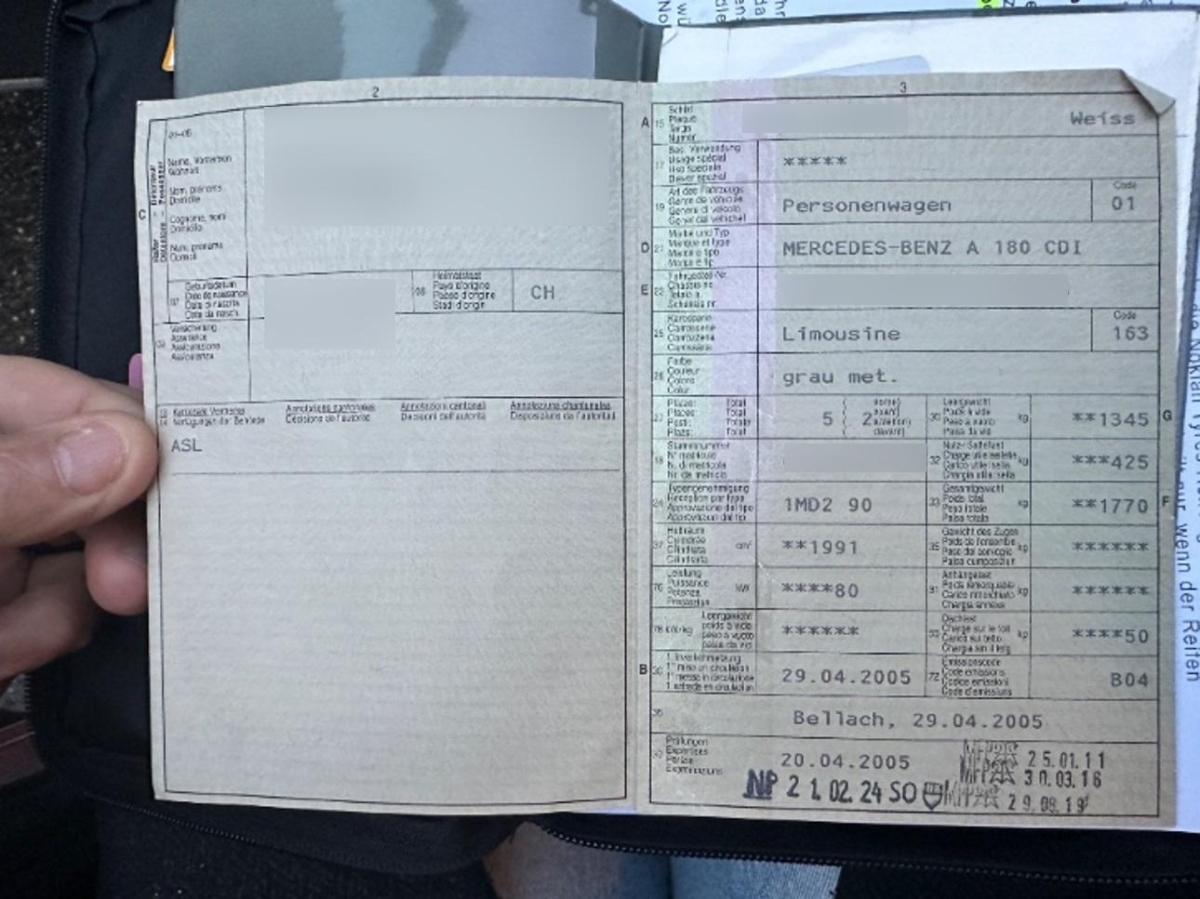 2
C
Name, Vornamen
Wohnort
Nom, prénoms
Domicile
Cognome, nomi
Domicilio
Num, prenoms
Domicil
07
Geburtsdatum
Date de naissance
Data di nascita
Data da nasch.
08
Heimatstaat
Pays d'origine
Paese d'origine
Stadi d'origin
CH
09
Versicherung
Assurance
Assicurazione
Assicuranza
Décisions de l'autorité
Decisioni dell'autorità
Disposiziuns da l'autoritad
ASL
3
A 15
Schild
Plaque
Targa
Numer
Weiss
17
Bes. Verwendung
Usage spécial
Uso speciale
Diever spezial
*****
19
Art des Fahrzeugs
Genre de véhicule
Genere di veicolo
Gener dal vehichel
Personenwagen
Code
01
D 21
Marke und Typ
Marque et type
Marca e tipo
Marca e tip
MERCEDES-BENZ A 180 CDI
E 23
Fahrgestell-Nr.
Châssis no
Telaio n.
Schassis nr.
25
Karosserie
Carrosserie
Carrozzeria
Carossaria
Limousine
Code
163
26
Farbe
Couleur
Colore
Colur
grau met.
27
Plätze: Total
Places: Total
Posti: Totale
Plazs: Total
5 ( 2
30
Leergewicht
Poids à vide
Peso a vuoto
Paisa da vid
kg
**1345
G
18
Stammnummer
N° matricule
N. di matricola
Nr. da matricla
32
Nutz-/Sattellast
kg
***425
24
Typengenehmigung
Réception par type
Approvazione del tipo
Approvaziun dal tip
1MD2 90
33
Gesamtgewicht
Poids total
Peso totale
Paisa totala
kg
**1770
F
37
Hubraum
Cylindrée
Cilindrata
Cilindrada
cm³
**1991
35
Gewicht des Zuges
Poids de l'ensemble
kg
******
76
Leistung
Puissance
Potenza
Prestaziun
kW
****80
31
Anhängelast
kg
******
78 kW/kg
Leergewicht
poids à vide
peso a vuoto
paisa da vid
******
55
Dachlast
Charge sur le toit
Carico sul tetto
kg
****50
B 36
1. Inverkehrsetzung
29.04.2005
72
Emissionscode
Code émissions
Codice emissioni
Code d'emissiuns
B04
38
Bellach, 29.04.2005
Prüfungen
Expertises
Perizie
20.04.2005
25.01.11
30.03.16
NP 21.02.24 SO
29.08.19